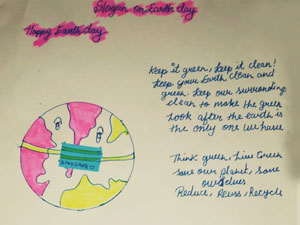 Slogan on Earth day
Happy Earth day
Keep it green, keep it clean!
Keep your Earth clean and
green. Keep our surrounding
clean to make the green
Look after the earth is
the only one we have
Think green, Live Green
save our planet, save
ourselves
Reduce, Reuse, Recycle